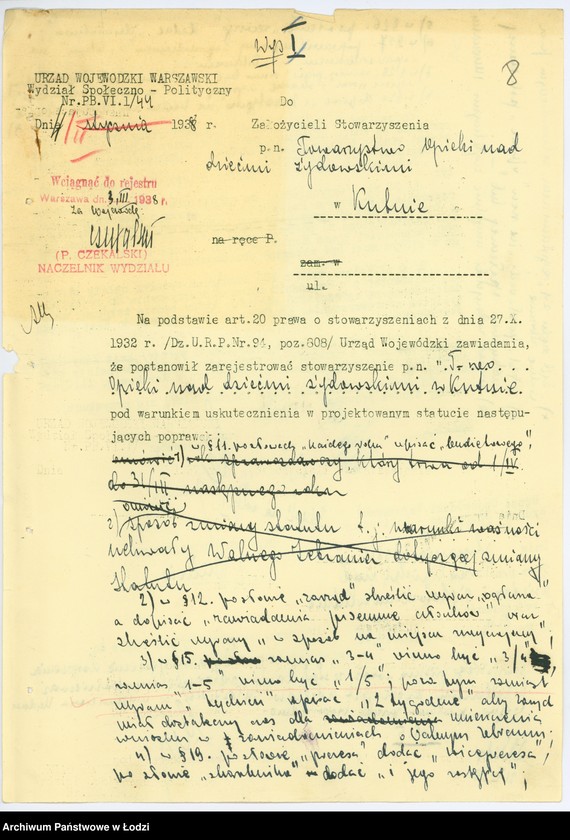 Wyp I
8
URZĄD WOJEWÓDZKI WARSZAWSKI
Wydział Społeczno - Polityczny
Nr.PB.VI.1/44
Dnia 4/III stycznia 1938 r.
Do
Założycieli Stowarzyszenia
p.n. Towarzystwo Opieki nad
dziećmi żydowskimi
w Kutnie
na ręce P.
zam. w
ul.
Wciągnąć do rejestru
Warszawa dn. 3.III 1938 r.
za Wojewodę
(P. CZEKALSKI)
NACZELNIK WYDZIAŁU
Na podstawie art.20 prawa o stowarzyszeniach z dnia 27.X.
1932 r. /Dz.U.R.P.Nr.94, poz.808/ Urząd Wojewódzki zawiadamia,
że postanowił zarejestrować stowarzyszenie p.n. "T-wo
Opieki nad dziećmi żydowskimi w Kutnie
pod warunkiem uskutecznienia w projektowanym statucie następu-
jących poprawek:
1) w §11 po słowach "każdego roku" wpisać "budżetowego";
sprawozdawczy, który trwa od 1/IV
do 31/III następnego roku
omówić
2) sposób zmiany statutu t.j. warunki ważności
uchwały Walnego Zebrania dotyczącej zmiany
statutu
2) w §12. po słowie "zarząd" skreślić wyraz "ogłasza"
a dopisać "zawiadamia pisemnie członków" oraz
skreślić wyrazy "w sposób na miejscu zwyczajny";
3) w §15. zamiast "3-4" winno być "3/4"
zamiast "1-5" winno być "1/5"; poza tym zamiast
wyrazu "tydzień" wpisać "2 tygodnie" aby
miał dostateczny czas dla umieszczenia
wniosków w zawiadomieniach o Walnym Zebraniu;
4) w §19. po słowie "prezesa" dodać "wiceprezesa";
po słowie "skarbnika" dodać "i jego zastępcę";
Archiwum Państwowe w Łodzi